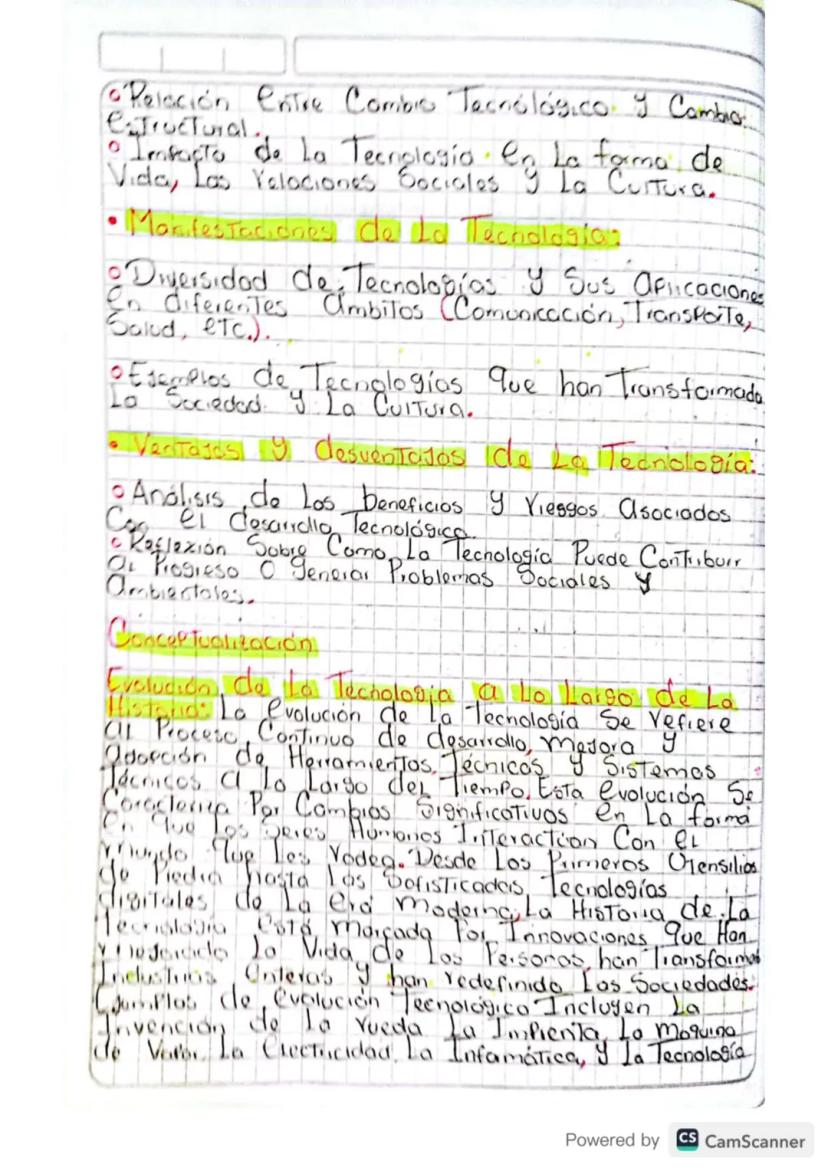 ° Relación Entre Cambio Tecnólógico y Cambio
estructural.
° Impacto de La Tecnología en La forma de
Vida, Las relaciones Sociales y La Cultura.
• Manifestaciones de La Tecnología:
° Diversidad de Tecnologías y Sus Aplicaciones
en diferentes ámbitos (Comunicación, Transporte,
Salud, etc.).
° Ejemplos de Tecnologías que han Transformado
La Sociedad y La Cultura.
• Ventajas y desventajas de La Tecnología:
° Análisis de Los beneficios y riesgos asociados
Con el desarrollo Tecnológico
° Reflexión Sobre Como La Tecnología Puede Contribuir
al Progreso O generar Problemas Sociales y
ambientales.
Conceptualización
Evolución de La Tecnologia a Lo Largo de La
Historia: La evolución de La Tecnología Se refiere
al Proceso Continuo de desarrollo, mejora y
adopción de Herramientas, Técnicas y Sistemas
Técnicos a lo Largo del Tiempo. Esta evolución Se
Caracteriza Por Cambios Significativos en La forma
en que Los Seres Humanos Interactúan Con el
mundo que Les rodea. Desde Los Primeros Utensilios
de Piedra hasta Las Sofisticadas Tecnologías
digitales de La era moderna, La Historia de La
Tecnología está marcada Por Innovaciones Que Han
la Vida de Las Personas, han Transformado
Industrias enteras y han redefinido Las Sociedades.
Ejemplos de evolución Tecnológico Incluyen La
Invención de la rueda La Imprenta, La maquina
de Vapor, La Electricidad, La Infamática, y la Tecnología
Powered by CS CamScanner